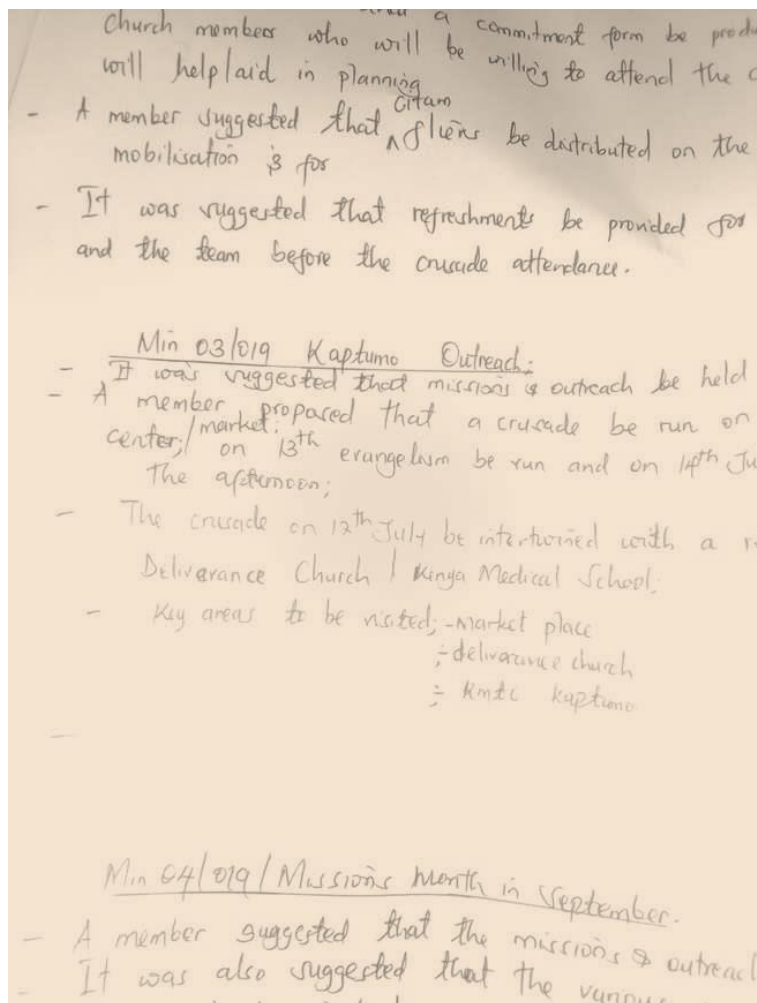 a commitment form be produ
church members who will be willing to attend the c
will help/aid in planning
- A member suggested that ^ Citam fliers be distributed on the
mobilisation is for
- It was suggested that refreshments be provided for
and the team before the crusade attendance.
Min 03/019 Kaptumo Outreach:
- It was suggested that missions & outreach be held
- A member proposed that a crusade be run on
center;/market; on 13th evangelism be run and on 14th Ju
The afternoon;
- The crusade on 12th July be intertwined with a
Deliverance Church / Kenya Medical School.
- Key areas to be visited; -market place
÷ deliverance church
÷ KMTC Kaptumo
-
Min 04/019/Missions Month in September.
- A member suggested that the missions & outreac
- It was also suggested that the various